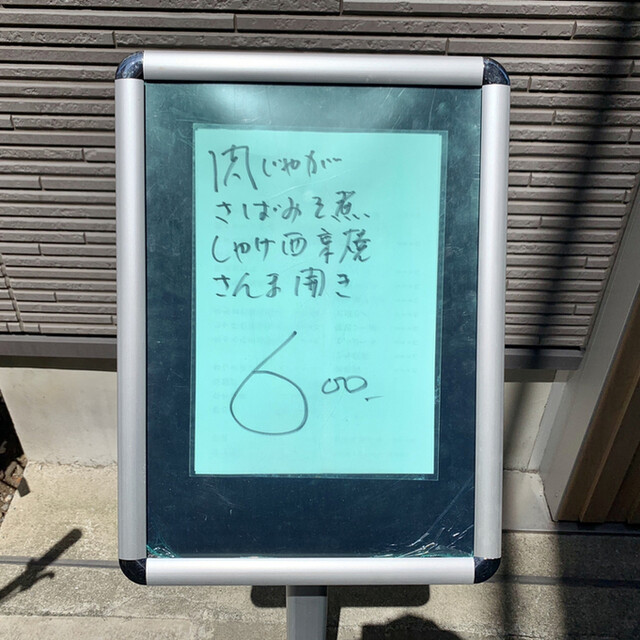 肉じゃがー
さばみそ煮
しゃけ西京焼
さんま開き
600.-